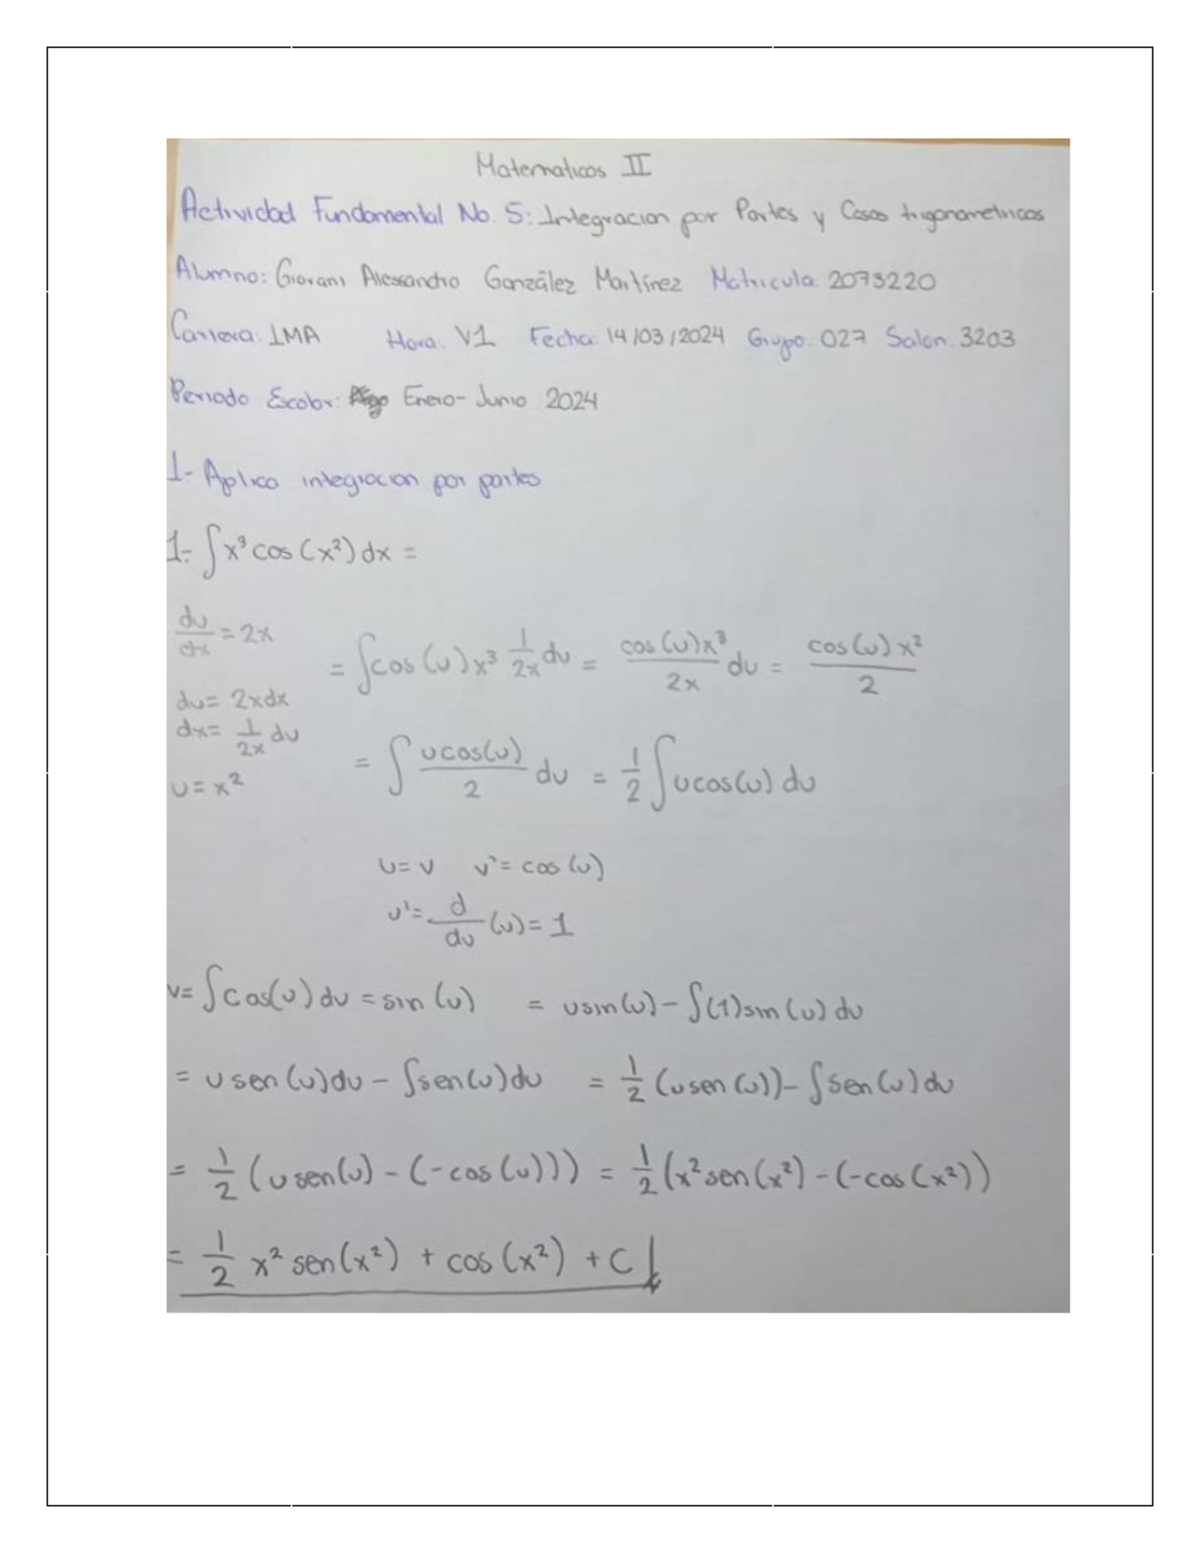 Matematicas II
Actividad Fundamental No. 5: Integracion por Partes y Casos trigonometricos
Alumno: Giovani Alessandro González Martínez Matricula: 2073220
Carrera: IMA Hora: V1 Fecha: 14/03/2024 Grupo: 027 Salon: 3203
Periodo Escolar: Enero-Junio 2024
1- Aplica integracion por partes
1.- ∫x³cos(x²)dx =
du/dx = 2x
= ∫cos(u)x³ 1/2x du = cos(u)x³/2x du = cos(u)x²/2
du = 2xdx
dx = 1/2x du
u = x²
= ∫ucos(u)/2 du = 1/2 ∫ucos(u)du
u = v v' = cos(u)
u' = d/du (u) = 1
v = ∫cos(u)du = sin(u) = usin(u) - ∫(1)sin(u)du
= usen(u)du - ∫sen(u)du = 1/2 (usen(u)) - ∫sen(u)du
= 1/2 (usen(u) - (-cos(u))) = 1/2 (x²sen(x²) - (-cos(x²))
= 1/2 x² sen(x²) + cos(x²) + C